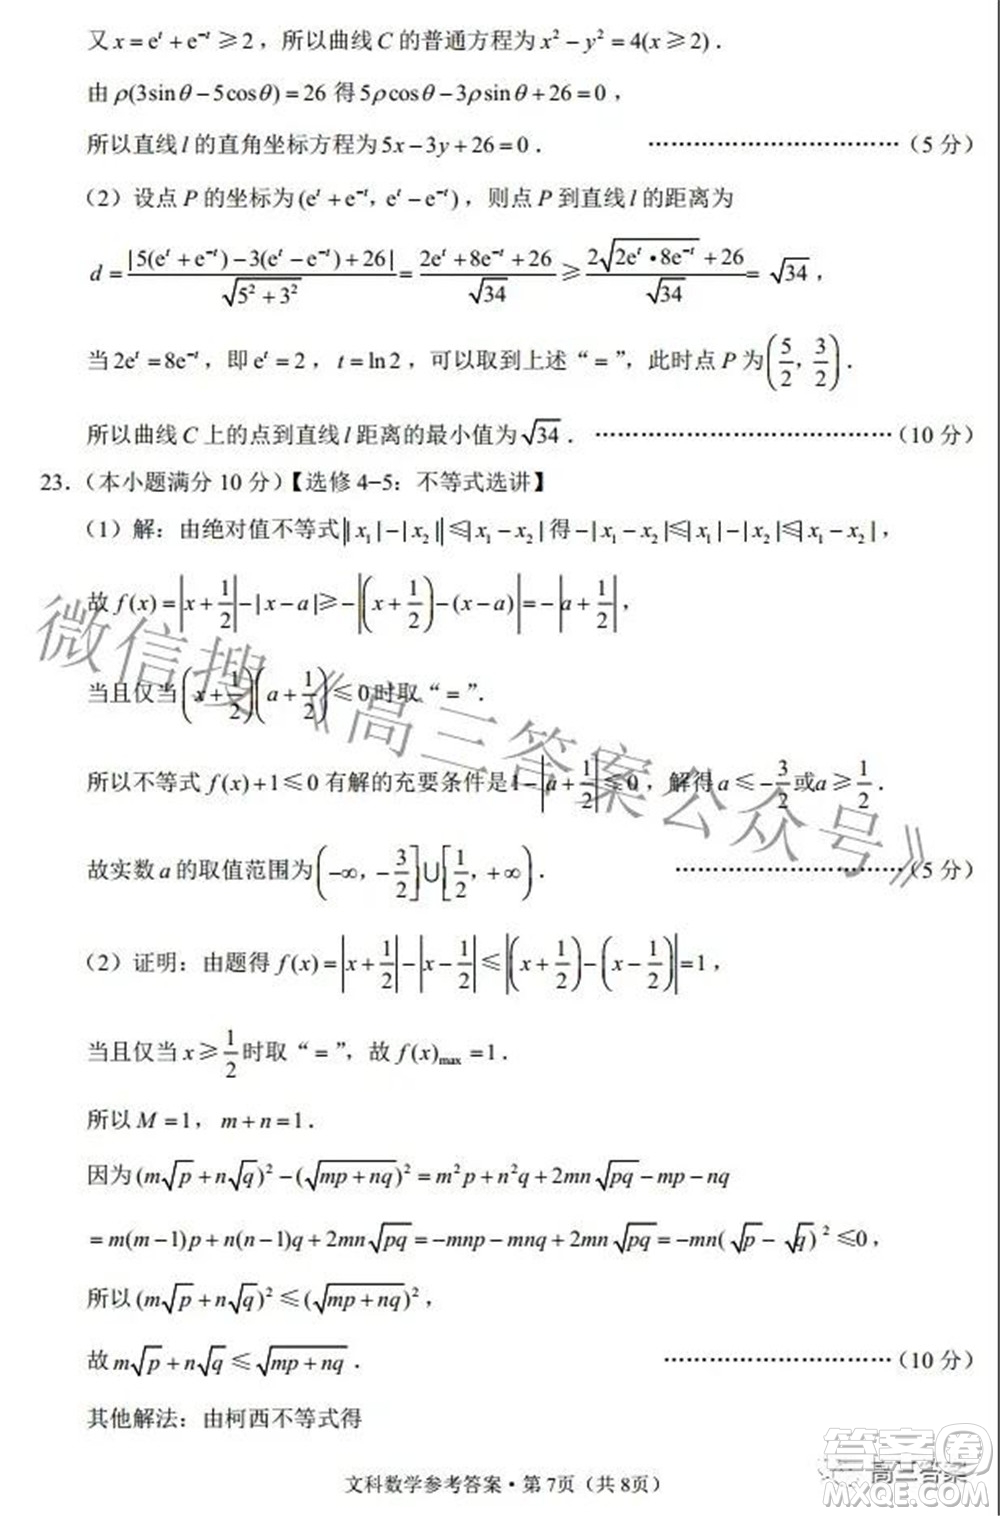 又 x = eᵗ + e⁻ᵗ ≥ 2，所以曲线 C 的普通方程为 x² − y² = 4(x ≥ 2)．
由 ρ(3sinθ − 5cosθ) = 26 得 5ρcosθ − 3ρsinθ + 26 = 0，
所以直线 l 的直角坐标方程为 5x − 3y + 26 = 0． ……………………………（5 分）
（2）设点 P 的坐标为 (eᵗ + e⁻ᵗ, eᵗ − e⁻ᵗ)，则点 P 到直线 l 的距离为
d = |5(eᵗ + e⁻ᵗ) − 3(eᵗ − e⁻ᵗ) + 26| / √(5² + 3²) = (2eᵗ + 8e⁻ᵗ + 26)/√34 ≥ (2√(2eᵗ • 8e⁻ᵗ) + 26)/√34 = √34，
当 2eᵗ = 8e⁻ᵗ，即 eᵗ = 2，t = ln 2，可以取到上述“＝”，此时点 P 为 (5/2, 3/2)．
所以曲线 C 上的点到直线 l 距离的最小值为 √34． …………………………………（10 分）
23．（本小题满分 10 分）【选修 4−5：不等式选讲】
（1）解：由绝对值不等式 ||x₁| − |x₂|| ≤ |x₁ − x₂| 得 −|x₁ − x₂| ≤ |x₁| − |x₂| ≤ |x₁ − x₂|，
故 f(x) = |x + 1/2| − |x − a| ≥ −|(x + 1/2) − (x − a)| = −|a + 1/2|，
当且仅当 (x + 1/2)(a + 1/2) ≤ 0 时取“＝”．
所以不等式 f(x) + 1 ≤ 0 有解的充要条件是 1 − |a + 1/2| ≤ 0，解得 a ≤ −3/2 或 a ≥ 1/2．
故实数 a 的取值范围为 (−∞, −3/2] ∪ [1/2, +∞)． …………………………（5 分）
（2）证明：由题得 f(x) = |x + 1/2| − |x − 1/2| ≤ |(x + 1/2) − (x − 1/2)| = 1，
当且仅当 x ≥ 1/2 时取“＝”，故 f(x)max = 1．
所以 M = 1，m + n = 1．
因为 (m√p + n√q)² − (√(mp + nq))² = m²p + n²q + 2mn√pq − mp − nq
= m(m−1)p + n(n−1)q + 2mn√pq = −mnp − mnq + 2mn√pq = −mn(√p − √q)² ≤ 0，
所以 (m√p + n√q)² ≤ (√(mp + nq))²，
故 m√p + n√q ≤ √(mp + nq)． …………………………（10 分）
其他解法：由柯西不等式得
文科数学参考答案·第 7页（共 8页）
微信搜《高三答案公众号》
答案圈
高三答案